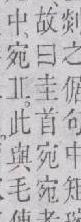 剡之倨句中矩
故曰圭首宛宛者
中、宛丘。此與毛傳